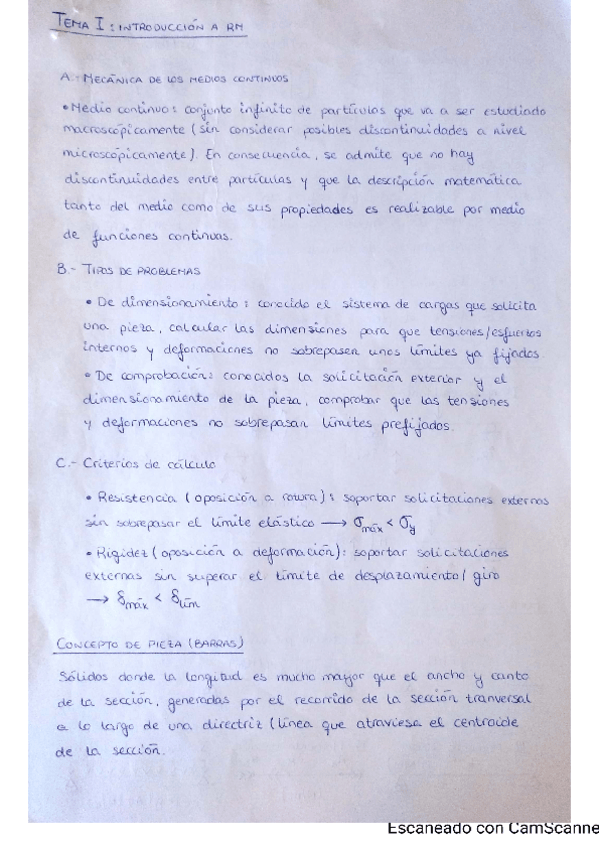 TEMA I: INTRODUCCIÓN A RM
A.- MECÁNICA DE LOS MEDIOS CONTINUOS
• Medio continuo: conjunto infinito de partículas que va a ser estudiado
macroscópicamente (sin considerar posibles discontinuidades a nivel
microscópicamente). En consecuencia, se admite que no hay
discontinuidades entre partículas y que la descripción matemática
tanto del medio como de sus propiedades es realizable por medio
de funciones continuas.
B.- TIPOS DE PROBLEMAS
• De dimensionamiento: conocido el sistema de cargas que solicita
una pieza, calcular las dimensiones para que tensiones/esfuerzos
internos y deformaciones no sobrepasen unos límites ya fijados
• De comprobación: conocidos la solicitación exterior y el
dimensionamiento de la pieza, comprobar que las tensiones
y deformaciones no sobrepasan límites prefijados.
C.- Criterios de cálculo
• Resistencia (oposición a rotura): soportar solicitaciones externas
sin sobrepasar el límite elástico → σmáx < σy
• Rigidez (oposición a deformación): soportar solicitaciones
externas sin superar el límite de desplazamiento/giro
→ δmáx < δlím
CONCEPTO DE PIEZA (BARRAS)
Sólidos donde la longitud es mucho mayor que el ancho y canto
de la sección, generadas por el recorrido de la sección tranversal
a lo largo de una directriz (línea que atraviesa el centroide
de la sección.
Escaneado con CamScanne